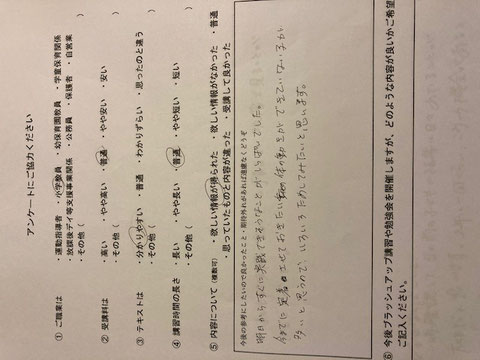 アンケートにご協力ください
① ご職業は ・運動指導者 ・小学教員 ・幼保育園教員 ・学童保育関係
・放課後デイ等支援事業関係 ・公務員 ・保護者 ・自営業
・その他（ ）
② 受講料は ・高い ・やや高い ・普通 ・やや安い ・安い
・その他（ ）
③ テキストは ・分かりやすい ・普通 ・わかりずらい ・思ったのと違う
・その他（ ）
④ 講習時間の長さ ・長い ・やや長い ・普通 ・やや短い ・短い
・その他（ ）
⑤ 内容について（複数可） ・欲しい情報が得られた ・欲しい情報がなかった ・普通
・思っていたものと内容が違った ・受講して良かった
今後の参考にしたいので良かったこと・期待外れがあれば遠慮なくどうぞ
明日からすぐに実践できそうなことがいっぱいでした。
今までに定着させておきたい 体の動きができていない子が
多いと思うので、いろいろためしてみたいと思います。
⑥ 今後ブラッシュアップ講習や勉強会を開催しますが、どのような内容が良いかご希望
ご記入ください。